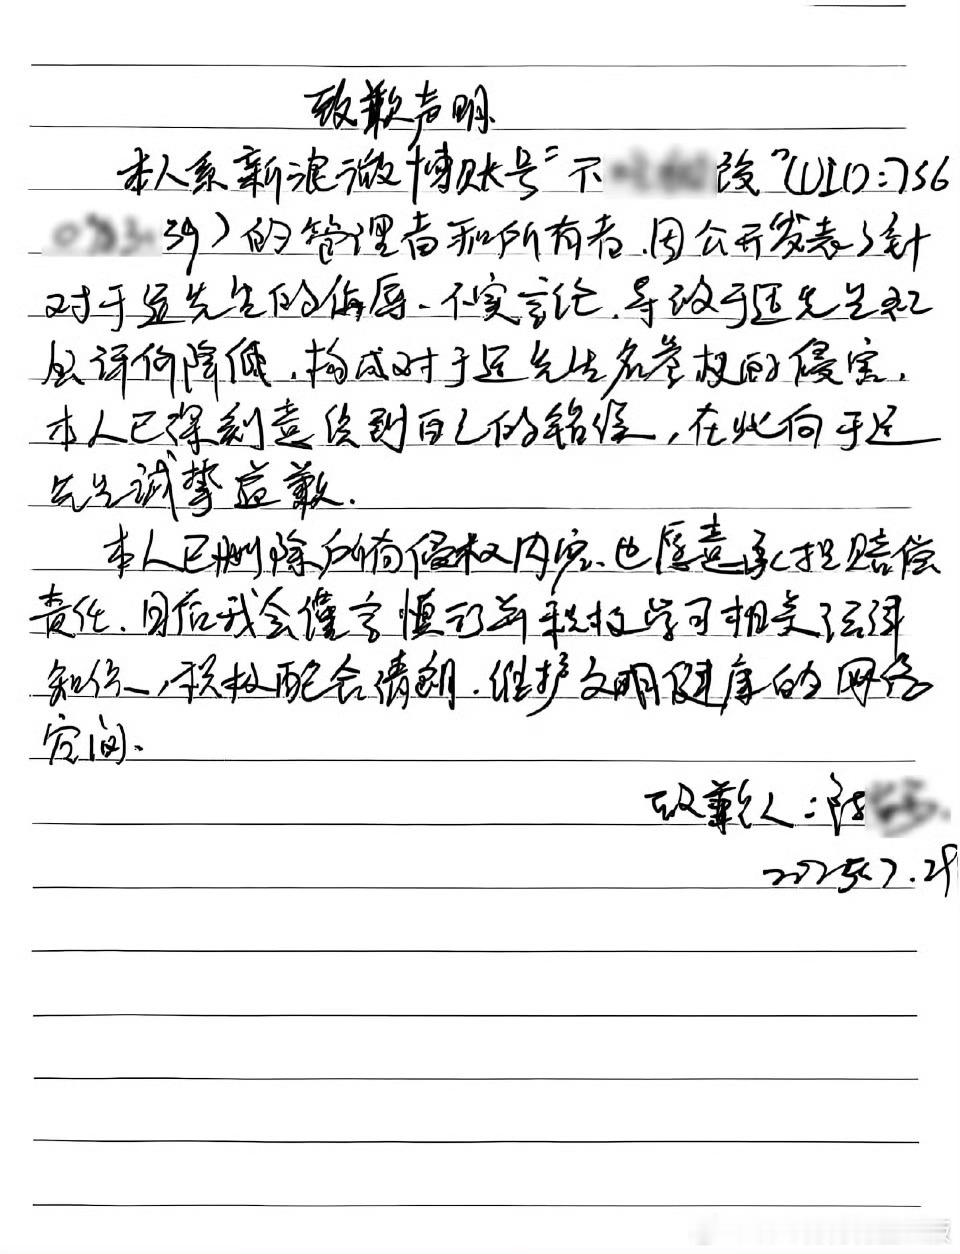 致歉声明
本人系新浪微博账号“不 改”(UID:756
39)的管理者和所有者,因公开发表了针
对于适先生的侮辱、不实言论,导致于适先生社
会评价降低,构成对于适先生名誉权的侵害,
本人已深刻意识到自己的错误,在此向于适
先生诚挚道歉.
本人已删除所有侵权内容,也愿意承担赔偿
责任,日后我会谨言慎行并积极学习相关法律
知识,积极配合清朗,维护文明健康的网络
空间.
致歉人:陆
2025.7.29